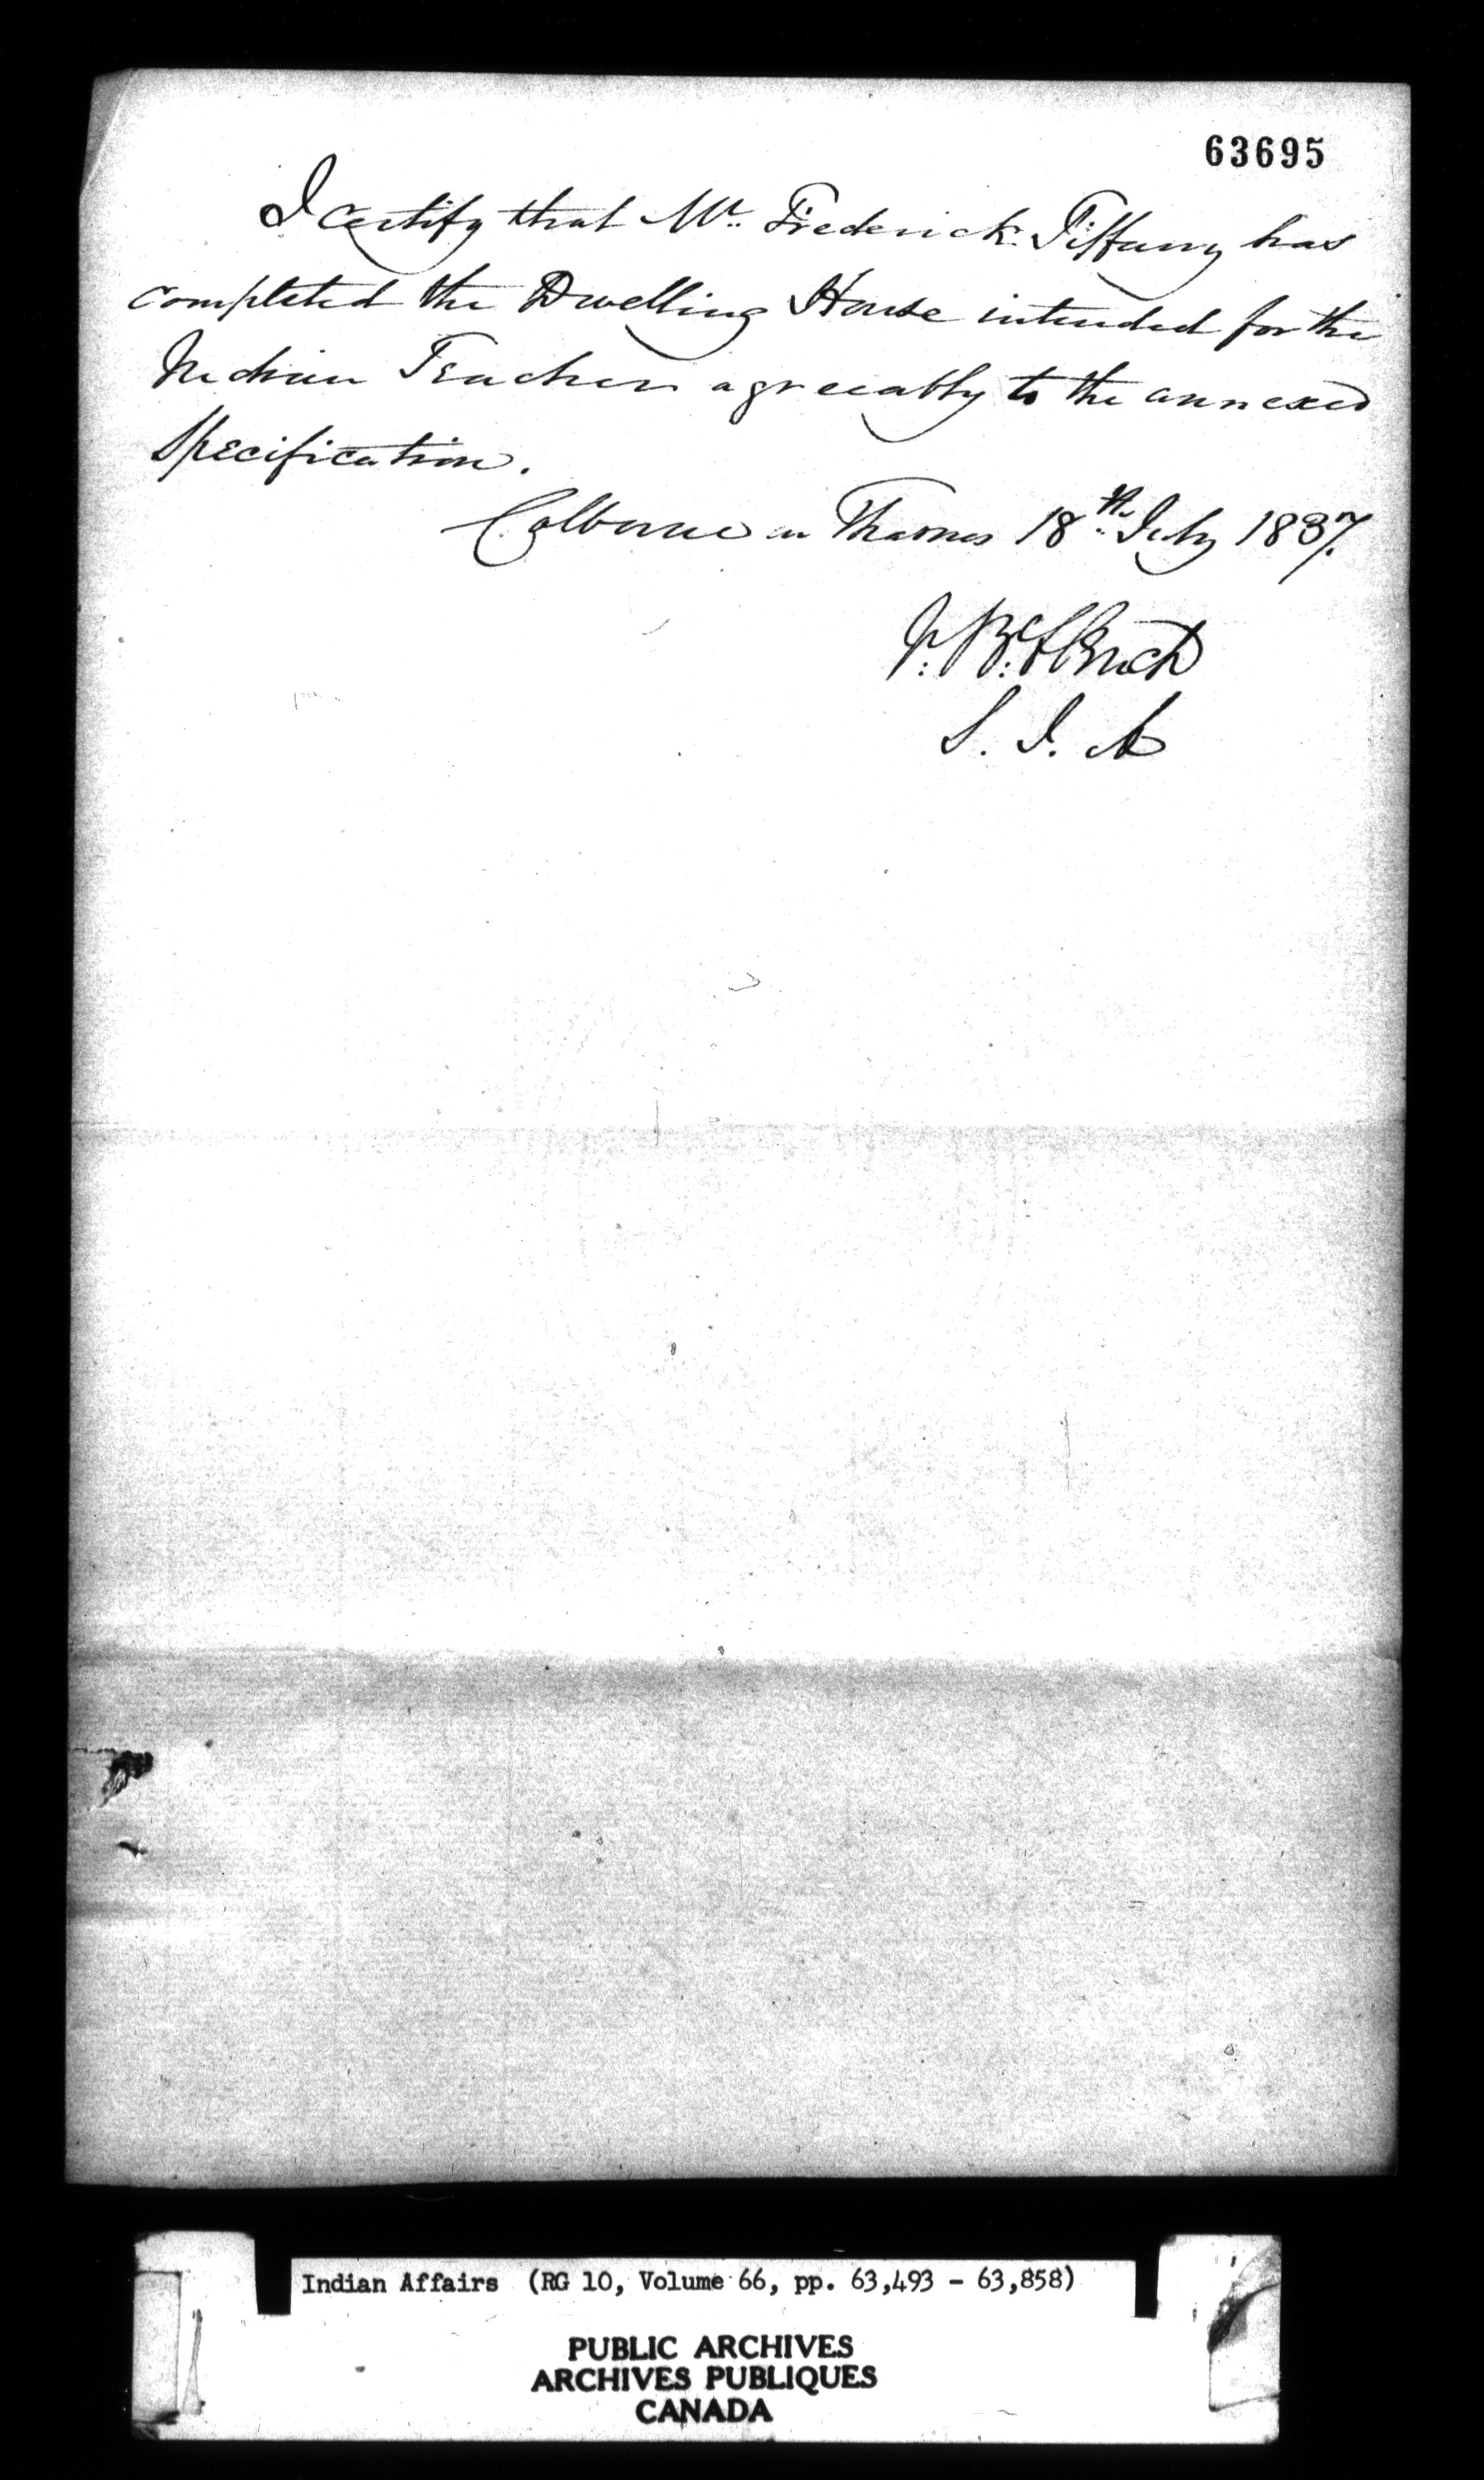 63695
I certify that Mr. Frederick Tiffany has
completed the Dwelling House intended for the
Indian Teacher agreeably to the annexed
Specification.
Colborne on Thames 18th July 1837.
J. B. Clench
S. I. A
Indian Affairs (RG 10, Volume 66, pp. 63,493 - 63,858)
PUBLIC ARCHIVES
ARCHIVES PUBLIQUES
CANADA